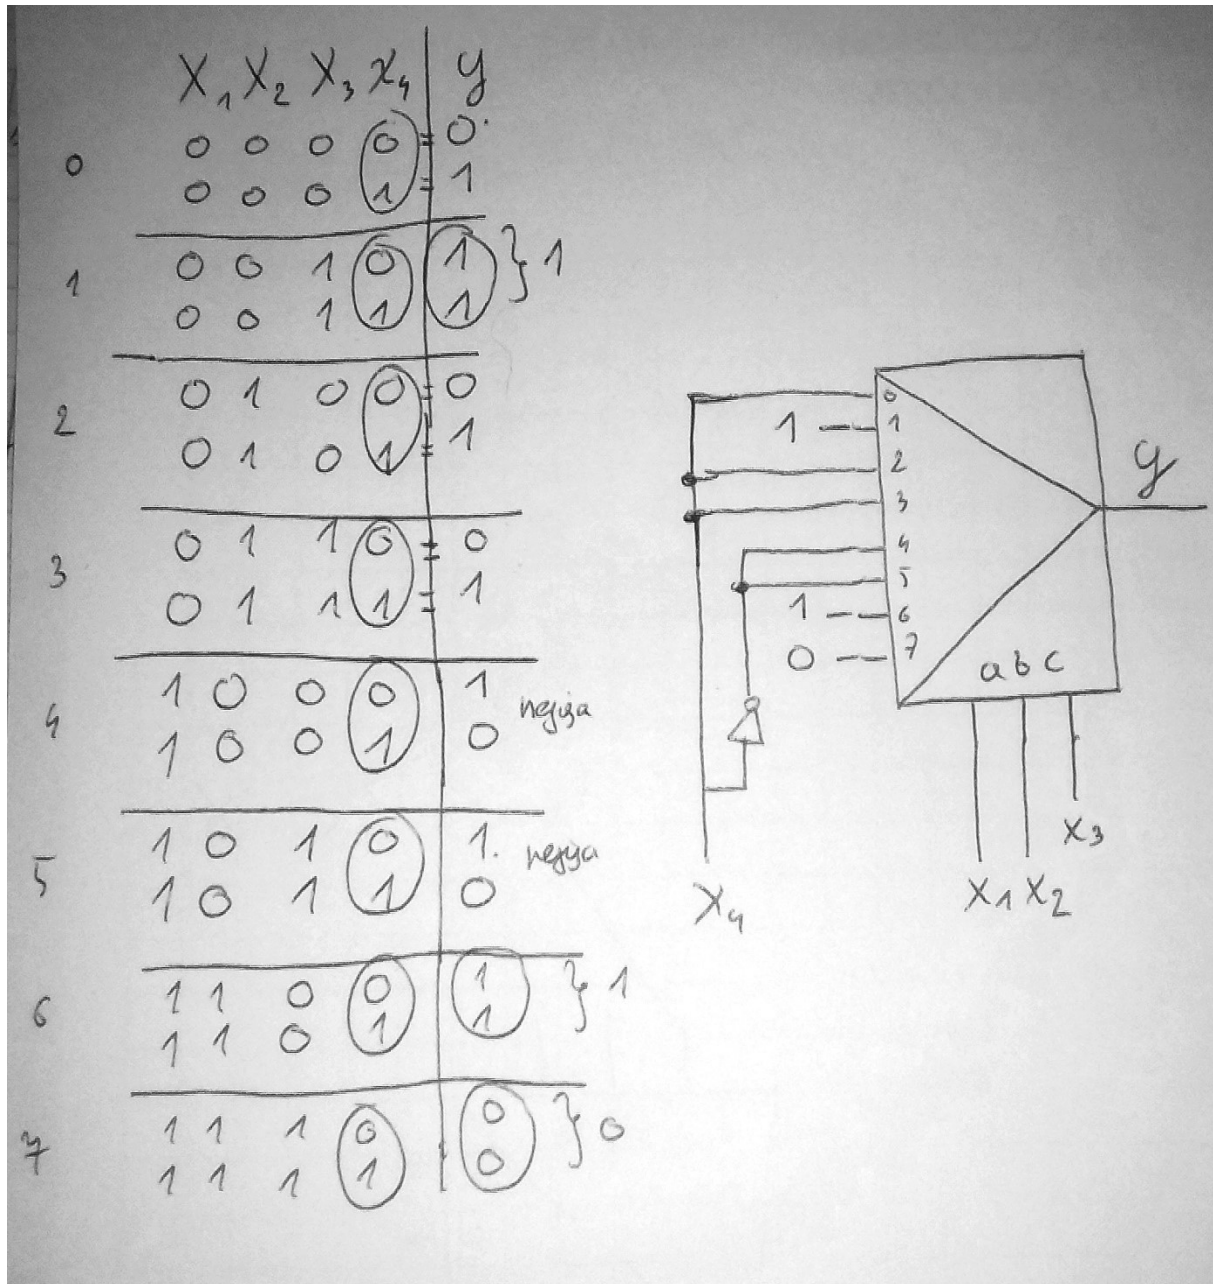 X₁ X₂ X₃ X₄ y
0
0 0 0 0 = 0
0 0 0 1 = 1
1
0 0 1 0 1 } 1
0 0 1 1 1
2
0 1 0 0 = 0
0 1 0 1 = 1
3
0 1 1 0 = 0
0 1 1 1 = 1
4
1 0 0 0 1
1 0 0 1 0
5
1 0 1 0 1
1 0 1 1 0
6
1 1 0 0 1 } 1
1 1 0 1 1
7
1 1 1 0 0 } 0
1 1 1 1 0
0
1 1
2
3
4
5
1 6
0 7
a b c
y
X₄
X₁ X₂
X₃